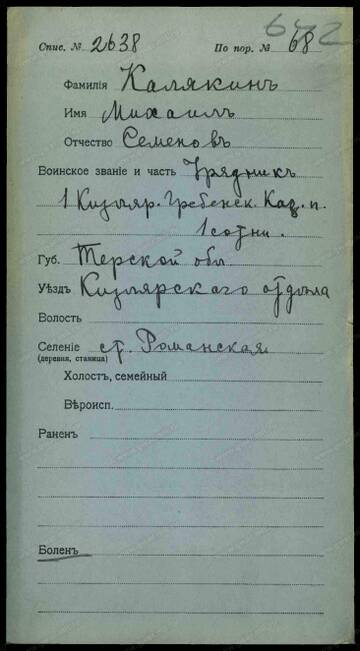 642
Спис. № 2638 По пор. № 68
Фамилія Калякинъ
Имя Михаилъ
Отчество Семеновъ
Воинское званіе и часть Урядникъ
1 Кизляр. Гребенск. Каз. п.
1 сотни.
Губ. Терской обл
Уѣздъ Кизлярскаго отдѣла
Волость
Селеніе ст. Романская
(деревня, станица)
Холостъ, семейный
Вѣроисп.
Раненъ
Боленъ